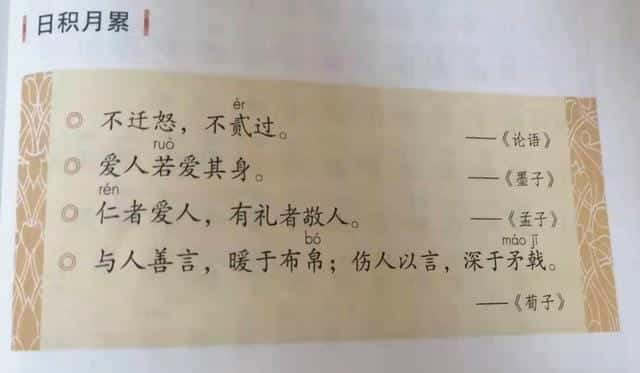 日积月累
èr
◎ 不迁怒，不贰过。 ——《论语》
ruò
◎ 爱人若爱其身。 ——《墨子》
rén
◎ 仁者爱人，有礼者敬人。 ——《孟子》
bó máo jǐ
◎ 与人善言，暖于布帛；伤人以言，深于矛戟。
——《荀子》